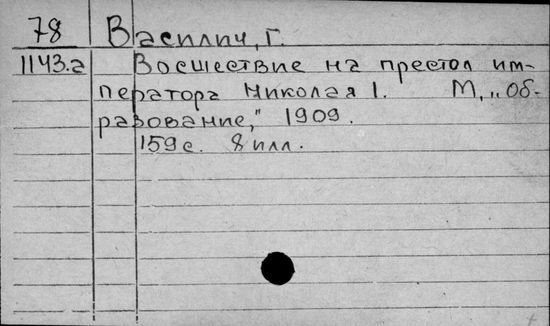 78 Василич, Г.
1143.а Восшествие на престол им-
ператора Николая I. М, „Об-
разование," 1909.
159 с. 8 илл.